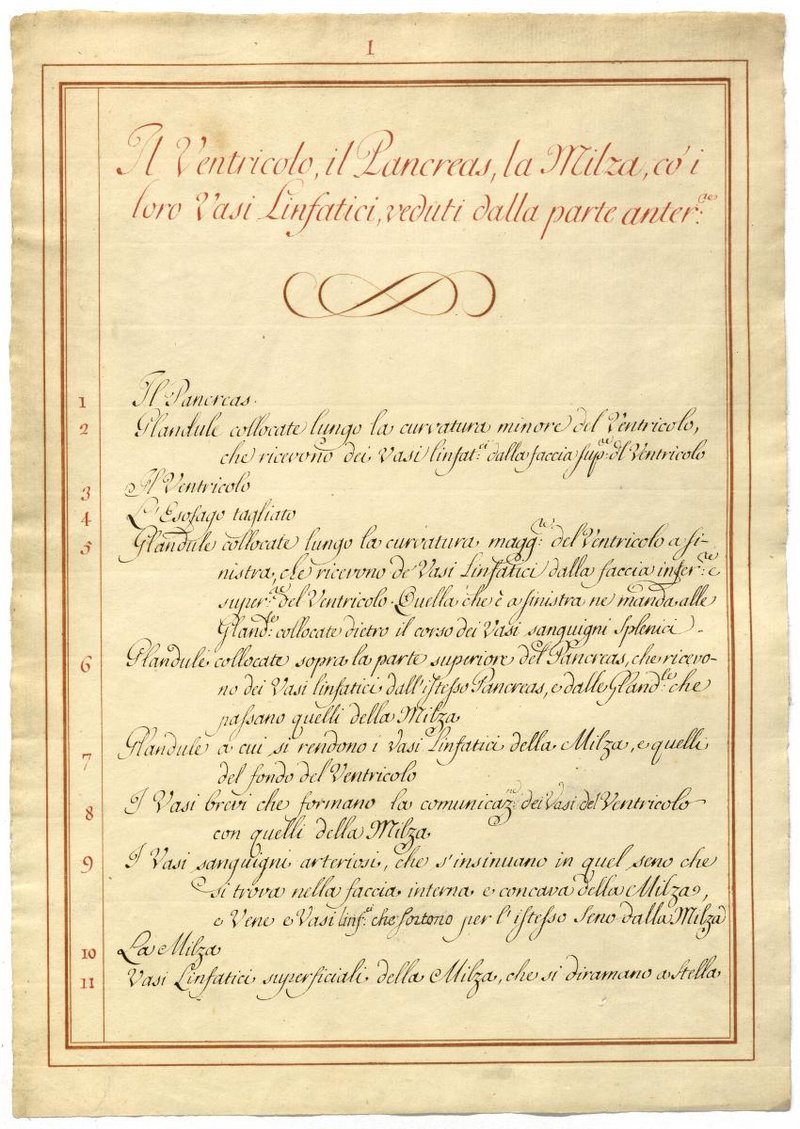 I
Il Ventricolo, il Pancreas, la Milza, co' i
loro Vasi Linfatici, veduti dalla parte anter:re
1 Il Pancreas.
2 Glandule collocate lungo la curvatura minore del Ventricolo,
che ricevono dei Vasi linfat:ci dalla faccia sup:re dl Ventricolo
3 Il Ventricolo
4 L'Esofago tagliato
5 Glandule collocate lungo la curvatura magg:re del Ventricolo a si-
nistra, che ricevono de' Vasi Linfatici dalla faccia infer:re e
super:re del Ventricolo. Quella che è a sinistra ne manda alle
Gland:le collocate dietro il corso dei Vasi sanguigni Splenici.
6 Glandule collocate sopra la parte superiore del Pancreas, che ricevo-
no dei Vasi linfatici dall'istesso Pancreas, e dalle Gland:le che
passano quelli della Milza
7 Glandule a cui si rendono i Vasi Linfatici della Milza, e quelli
del fondo del Ventricolo
8 I Vasi brevi che formano la comunicaz:ne dei Vasi del Ventricolo
con quelli della Milza
9 I Vasi sanguigni arteriosi, che s'insinuano in quel seno che
si trova nella faccia interna e concava della Milza,
e Vene e Vasi linf:ci che sortono per l'istesso Seno dalla Milza
10 La Milza
11 Vasi Linfatici superficiali della Milza, che si diramano a Stella